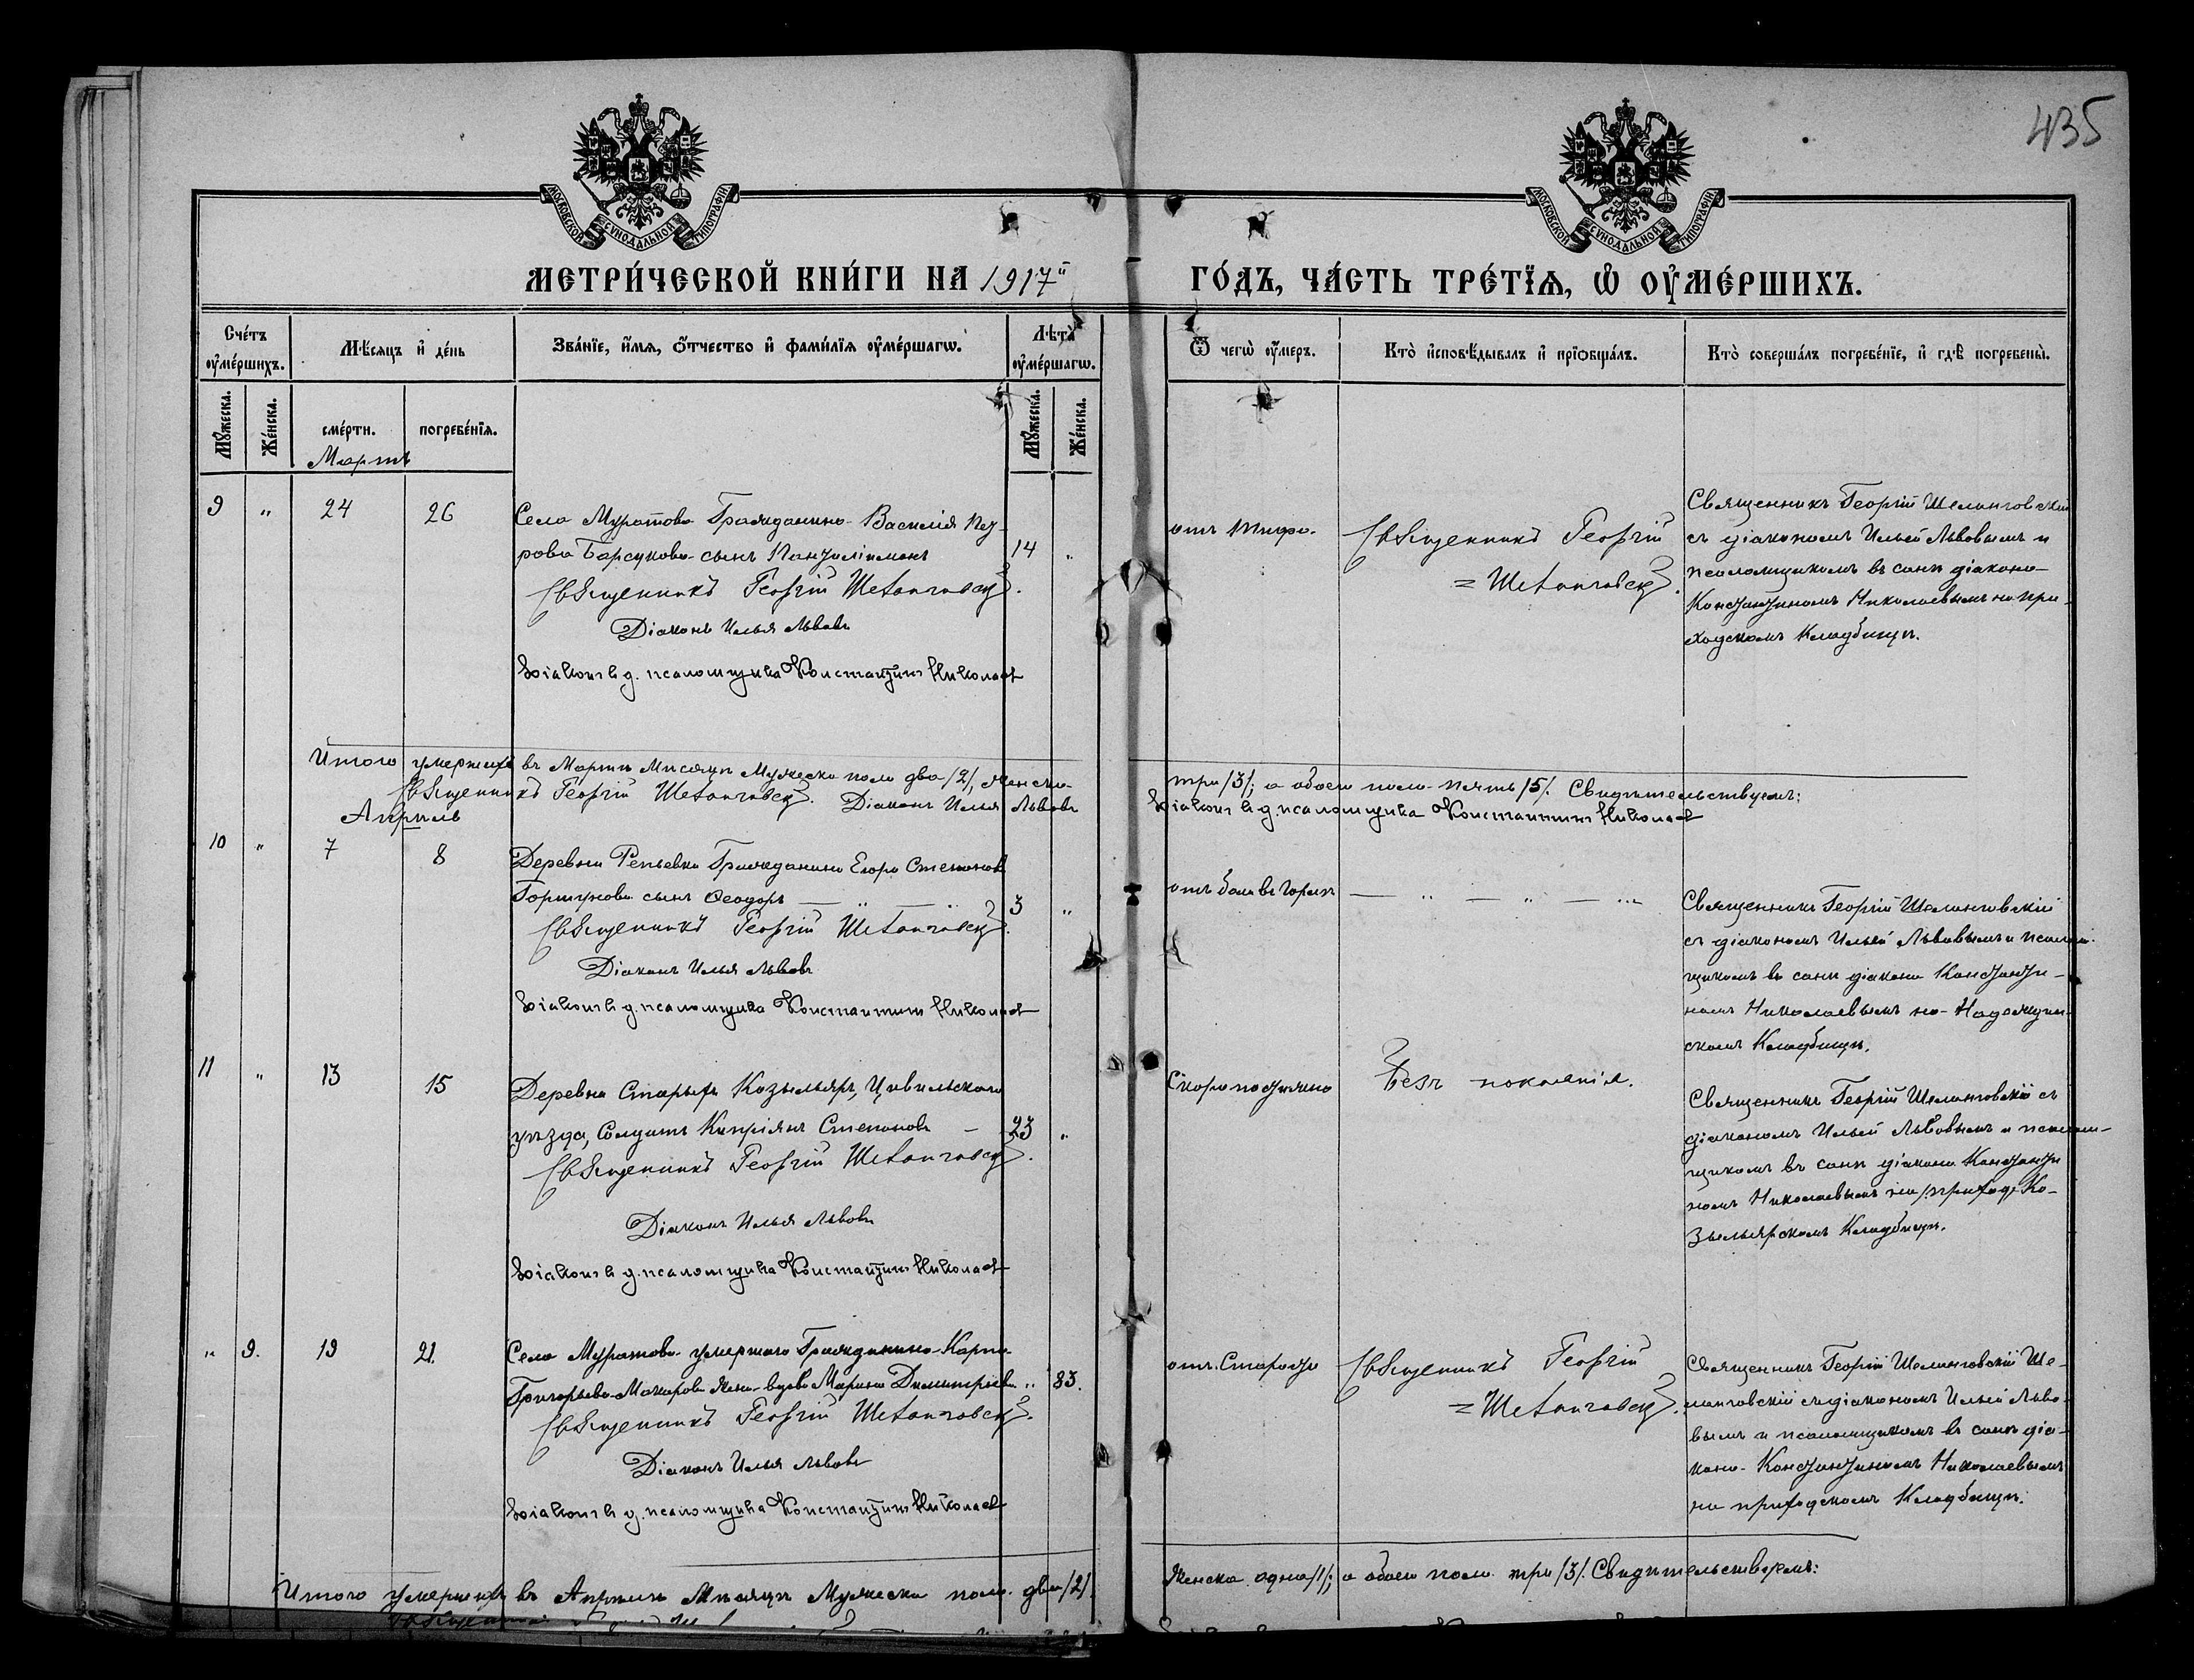 435
МОСКОВСКОЙ СѴНОДАЛЬНОЙ ТИПОГРАФІИ
МОСКОВСКОЙ СѴНОДАЛЬНОЙ ТИПОГРАФІИ
МЕТРИ́ЧЕСКОЙ КНИ́ГИ НА 1917й ГО́ДЪ, ЧА́СТЬ ТРЕ́ТІѦ, Ѡ ОУ҆МЕ́РШИХЪ.
Сче́тъ оу҆ме́ршихъ.
Мѣ́сяцъ и҆ де́нь
Зва́нїе, и҆́мѧ, ѻ҆́тчество и҆ фами́лїѧ оу҆ме́ршагѡ.
Лѣта̀ оу҆ме́ршагѡ.
Ѿ чегѡ̀ оу҆́меръ.
Кто̀ и҆сповѣ́дывалъ и҆ прїѡбща́лъ.
Кто̀ соверша́лъ погребе́нїе, и҆ гдѣ̀ погребены̀.
Мꙋ́жеска.
Же́нска.
сме́рти.
погребе́нїѧ.
Мꙋ́жеска.
Же́нска.
Мартъ
9 " 24 26
Села Муратова Гражданина Василія Пет-
рова Барсукова сынъ Пантолімонъ 14 "
Священникъ Георгій Шеланговскій.
Діаконъ Илья Львовъ
Діаконъ в д. псаломщика Константинъ Николаевъ
отъ тифа.
Священникъ Георгій
= Шеланговскій.
Священникъ Георгій Шеланговскій
съ діакономъ Ильей Львовымъ и
псаломщикомъ въ санѣ діакона
Константиномъ Николаевымъ на при-
ходскомъ кладбищѣ.
Итого умершихъ въ Мартѣ мѣсяцѣ Мужеска пола два /2/, женска
три /3/; а обоего пола пять /5/. Свидѣтельствуемъ:
Священникъ Георгій Шеланговскій. Діаконъ Илья Львовъ
Діаконъ в д. псаломщика Константинъ Николаевъ
Апрѣль
10 " 7 8
Деревни Репьевки Гражданина Егора Степанова
Горшунова сынъ Ѳеодоръ 3 "
Священникъ Георгій Шеланговскій.
Діаконъ Илья Львовъ
Діаконъ в д. псаломщика Константинъ Николаевъ
отъ боли въ горлѣ
— " — " — "
Священникъ Георгій Шеланговскій
съ діакономъ Ильей Львовымъ и псалом-
щикомъ въ санѣ діакона Константи-
номъ Николаевымъ на
скомъ кладбищѣ.
11 " 13 15
Деревни Старыхъ Козыльяръ, Цивильскаго
уѣзда, Солдатъ Кипріянъ Степановъ — 23 "
Священникъ Георгій Шеланговскій.
Діаконъ Илья Львовъ
Діаконъ в д. псаломщика Константинъ Николаевъ
Скоропостижно
Безъ покаянія.
Священникъ Георгій Шеланговскій съ
діакономъ Ильей Львовымъ и псалом-
щикомъ въ санѣ діакона Константи
номъ Николаевымъ на приход. Ко-
зыльярскомъ кладбищѣ.
" 9. 19 21.
Села Муратова умершаго Гражданина Карпа
Григорьева Макарова жена-вдова Марина Димитріева " 83.
Священникъ Георгій Шеланговскій.
Діаконъ Илья Львовъ
Діаконъ в д. псаломщика Константинъ Николаевъ
отъ Старости
Священникъ Георгій
= Шеланговскій.
Священникъ Георгій Шеланговскій Ше-
ланговскій съ діакономъ Ильей Льво-
вымъ и псаломщикомъ въ санѣ діа-
кона Константиномъ Николаевымъ
на приходскомъ кладбищѣ.
Итого умершихъ въ Апрѣлѣ мѣсяцѣ Мужеска пола два /2/.
Женска одна /1/; а обоего пола три /3/. Свидѣтельствуемъ: